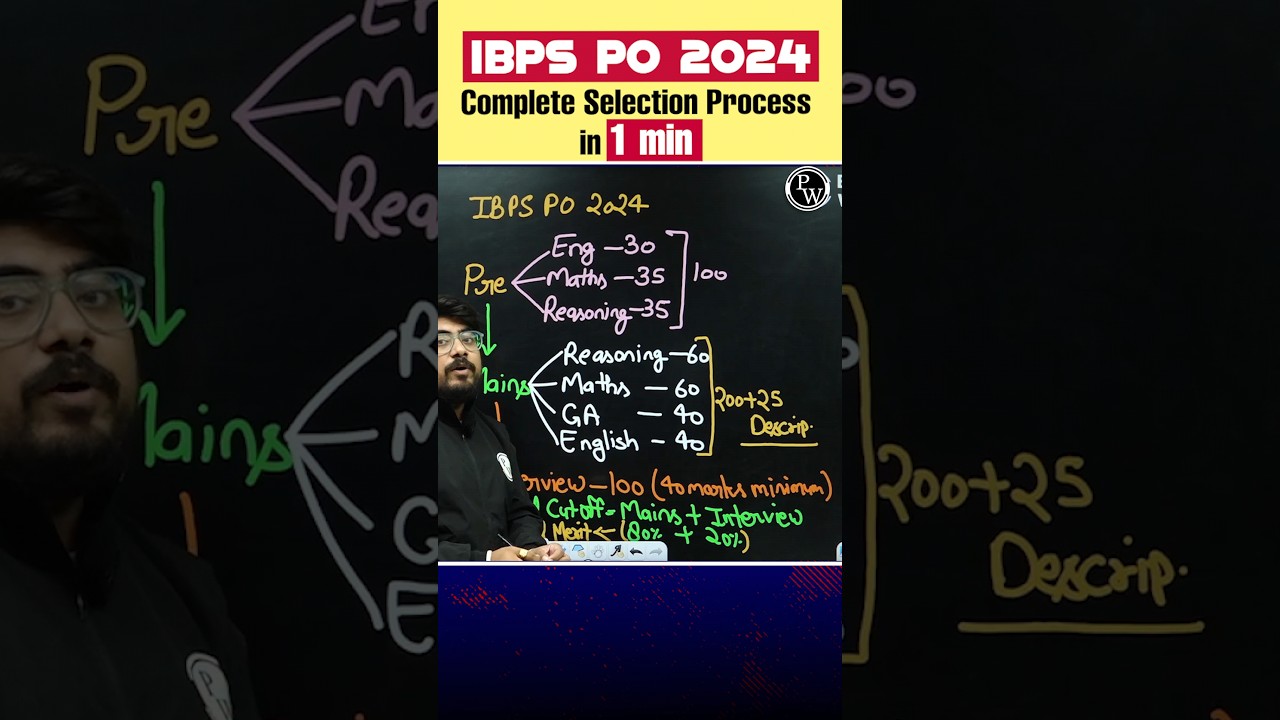 IBPS PO 2024
Complete Selection Process
in 1 min
PW
IBPS PO 2024
Pre
Eng - 30
Maths - 35
Reasoning - 35
100
Mains
Reasoning - 60
Maths - 60
GA - 40
English - 40
200+25
Descrip.
rview - 100 (40 marks minimum)
Cutoff = Mains + Interview
Merit ← (80% + 20%)